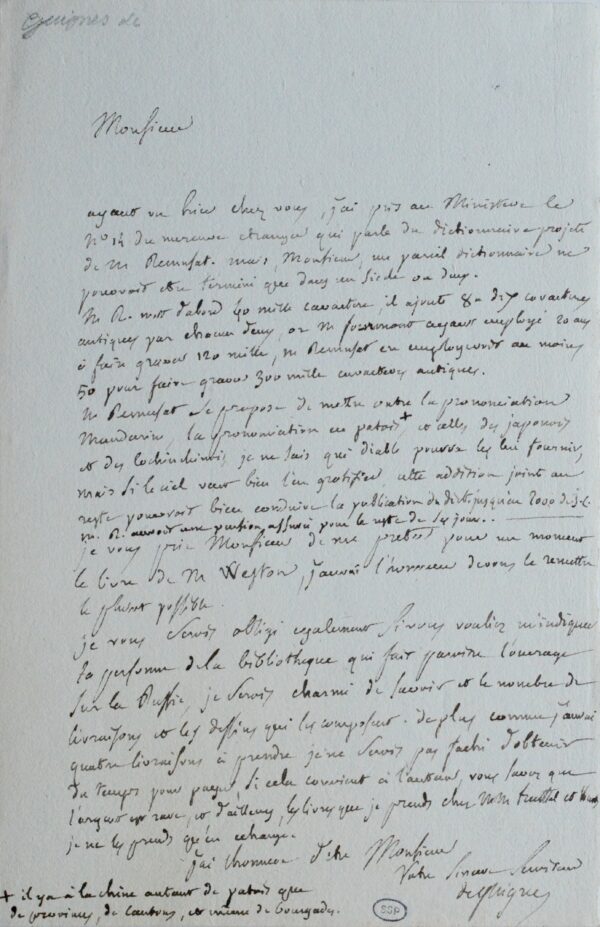 Guignes de
Monsieur
ayant vu hier chez vous, j'ai pris au Ministere le
N° 14 du mercure etranger qui parle du dictionnaire projeté
de M Remusat. mais, Monsieur, un pareil dictionnaire ne
pouvoit etre terminé que dans un siecle ou deux.
M R. met d'abord 40 mille caractere, il ajoute 8 a dix caracteres
antiques par chacun d'eux, or M fourmont ayant employé 20 ans
à faire graver 120 mille, M Remusat en employeroit au moins
50 pour faire graver 300 mille caracteres antiques.
M Remusat se propose de mettre outre la prononciation
Mandarine, la prononciation en patois + et celles des japonois
et des Cochinchinois, je ne sais qui diable pourra les lui fournir,
mais si le ciel veut bien l'en gratifier, cette addition joint au
reste pouvoit bien conduire la publication du dict. jusqu'en 2000 de j. C.
M. R. auroit une pension assuré pour le reste de ses jour..
je vous prie Monsieur de me preter pour un moment
le livre de M Weston, j'aurai l'honneur de vous le remettre
le plutot possible.
je vous serois obligé egalement si vous vouliez m'indiquer
la personne de la bibliotheque qui fait paroitre l'ouvrage
sur la Russie, je serois charmé de savoir et le nombre de
livraisons et les dessins qui les composent. de plus comme j'aurai
quatre livraisons à prendre je ne serois pas faché d'obtenir
du temps pour payer si cela convient à l'auteur, vous savez que
l'argent est rare, et d'ailleurs les livres que je prends chez MM treuttel et
je ne les prends qu'en echange.
j'ai l'honneur d'etre Monsieur
Votre Sincere Serviteur
deGuignes
+ il y a à la chine autant de patois que
de provinces, de cantons, et meme de bourgades.
SSP